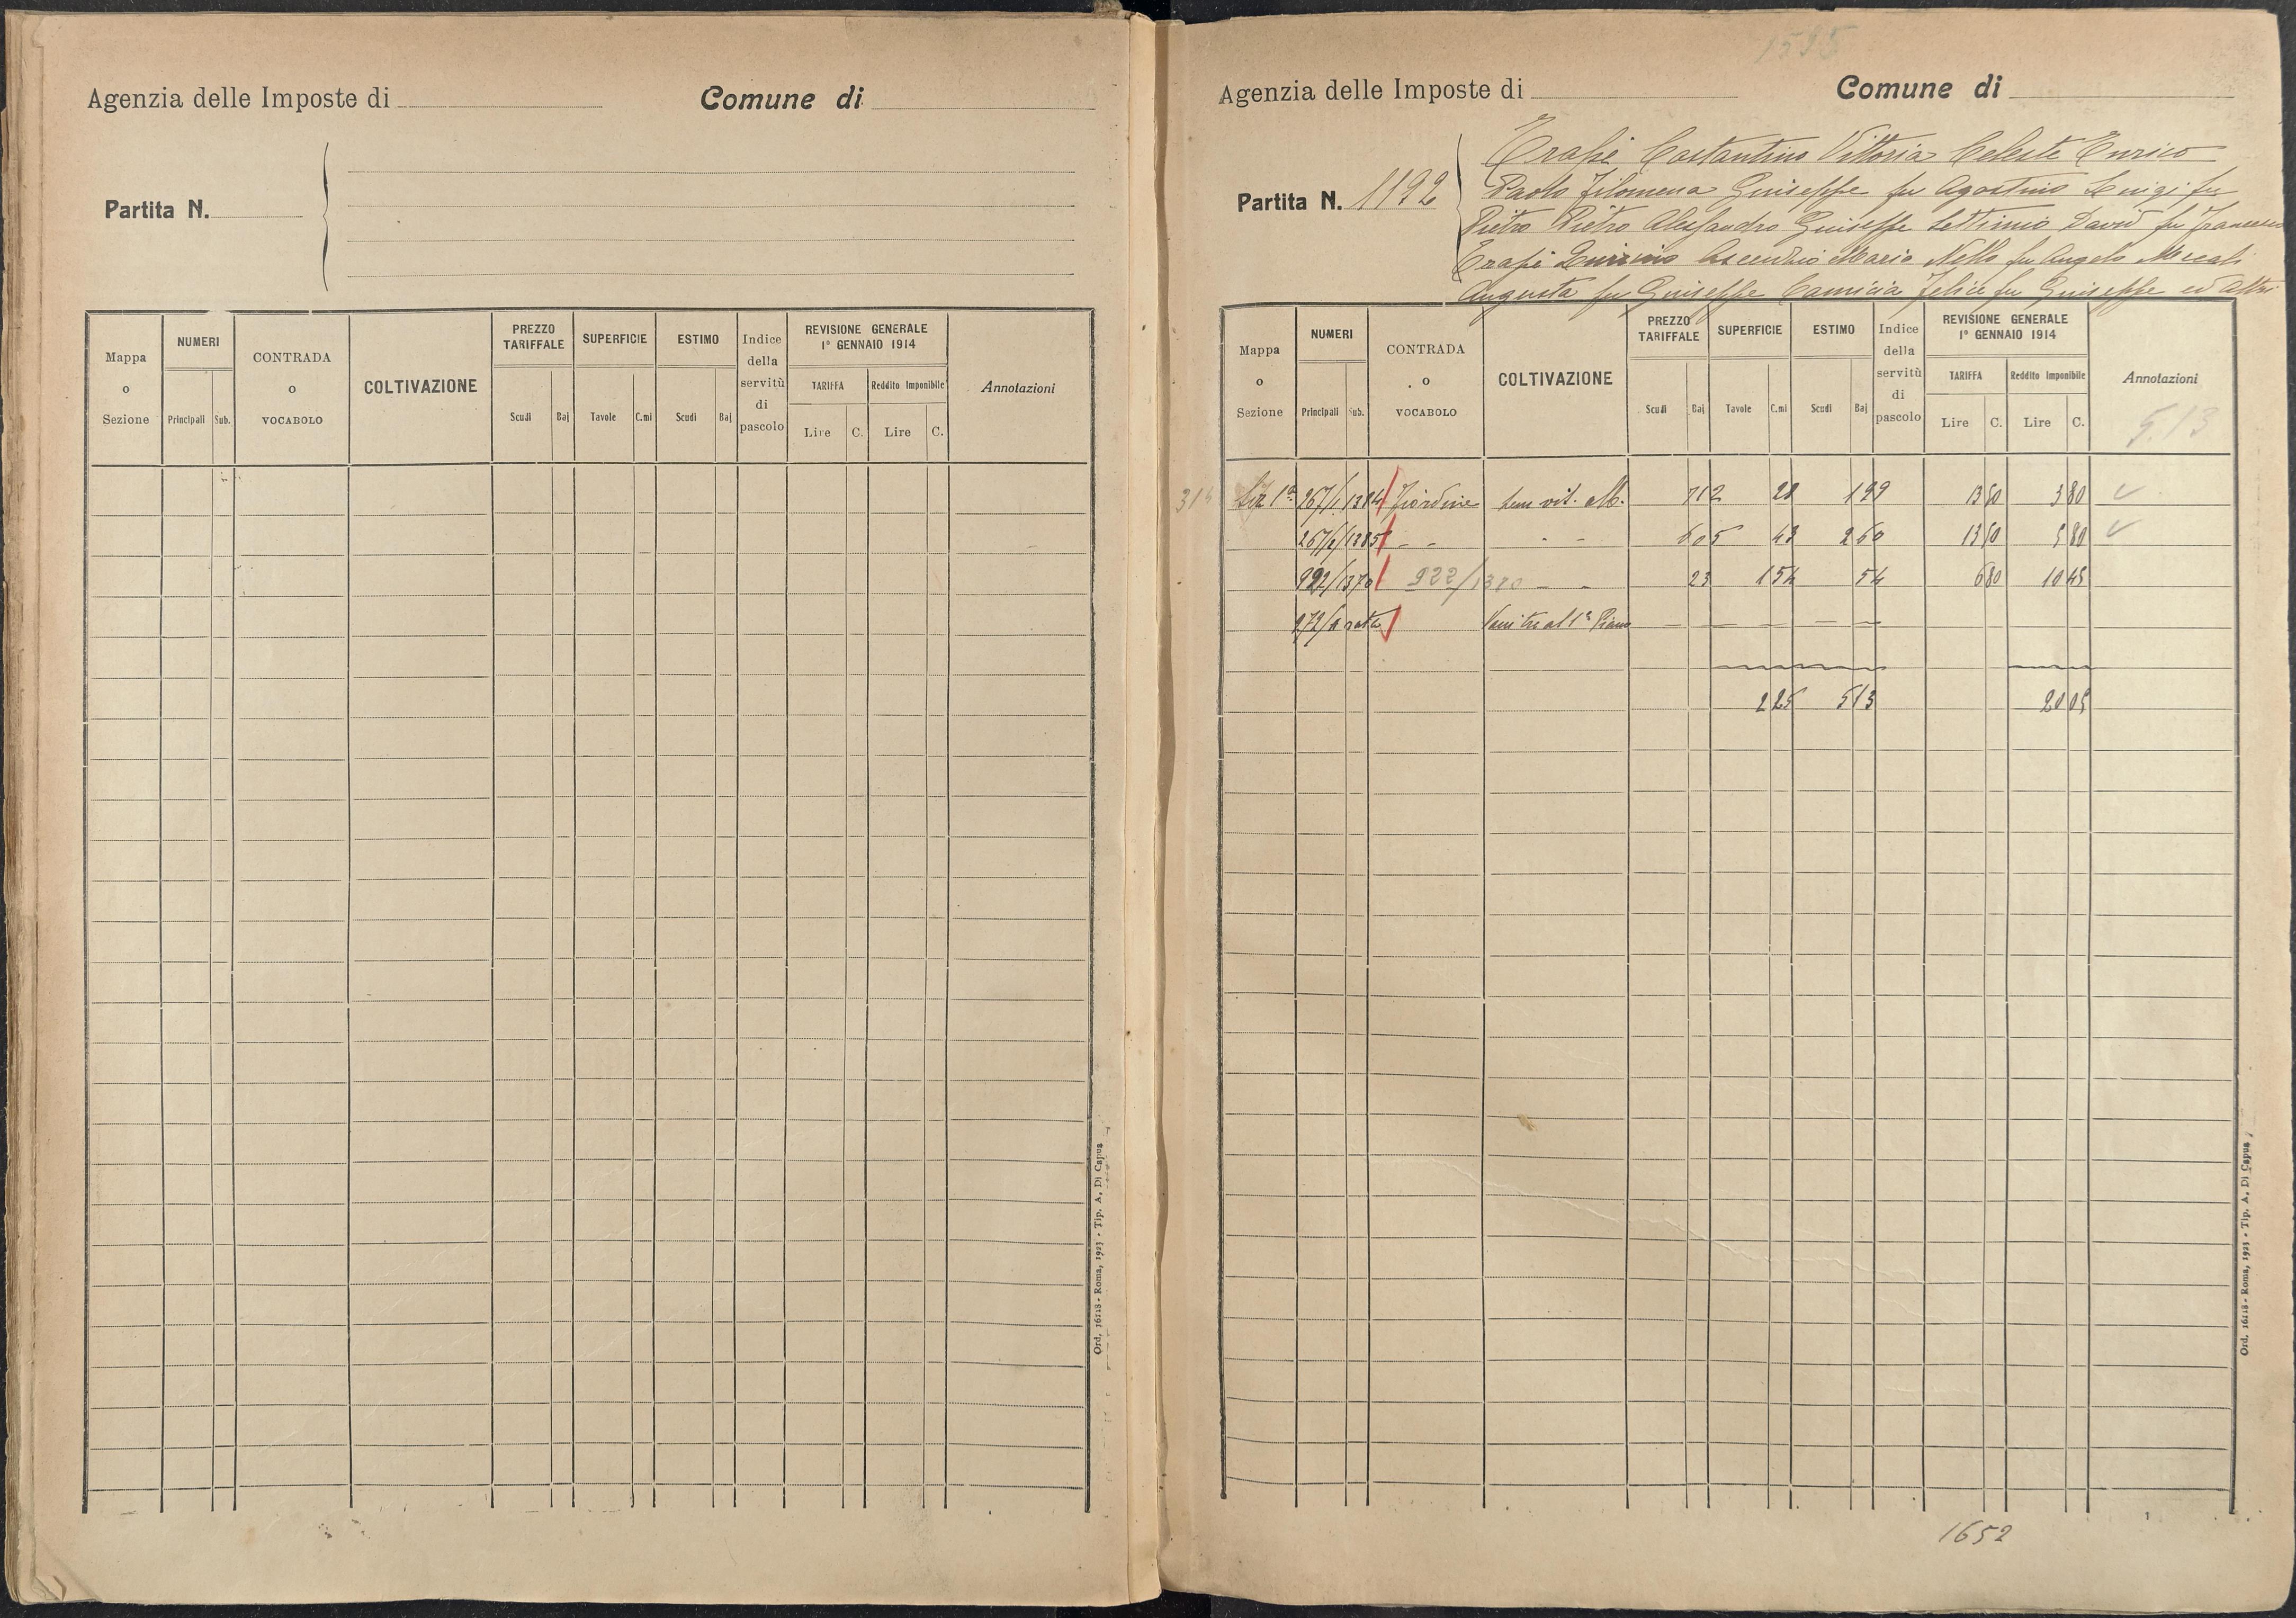 Agenzia delle Imposte di
Comune di
Partita N.
Mappa o Sezione
NUMERI
Principali Sub.
CONTRADA o VOCABOLO
COLTIVAZIONE
PREZZO TARIFFALE
Scudi Baj
SUPERFICIE
Tavole C.mi
ESTIMO
Scudi Baj
Indice della servitù di pascolo
REVISIONE GENERALE
1° GENNAIO 1914
TARIFFA
Reddito Imponibile
Lire C. Lire C.
Annotazioni
Ord. 16118 - Roma, 1923 - Tip. A. Di Capua
1595
Agenzia delle Imposte di
Comune di
Partita N. 1192
Costantino Vittoria Celeste Enrico
Paolo Filomena Giuseppe fu Agostino Luigi fu
Pietro Pietro Alessandro Giuseppe Settimio David fu Francesco
Mario Nello fu Angelo
Augusta fu Giuseppe Camicia Felice fu Giuseppe ed altri
Mappa o Sezione
NUMERI
Principali Sub.
CONTRADA o VOCABOLO
COLTIVAZIONE
PREZZO TARIFFALE
Scudi Baj
SUPERFICIE
Tavole C.mi
ESTIMO
Scudi Baj
Indice della servitù di pascolo
REVISIONE GENERALE
1° GENNAIO 1914
TARIFFA
Reddito Imponibile
Lire C. Lire C.
Annotazioni
5.13
Sez 1ª 267/1.1384 Fiordine Sem vit. M. 712 28 199 13 50 3 80
267/2/1385 - - - - 605 43 260 13 50 5 80
922/1370 922/1370 - - 23 154 54 6 80 10 45
972/4 rata Vani tre al 1° Piano
225 513 20 05
1652
Ord. 16118 - Roma, 1923 - Tip. A. Di Capua